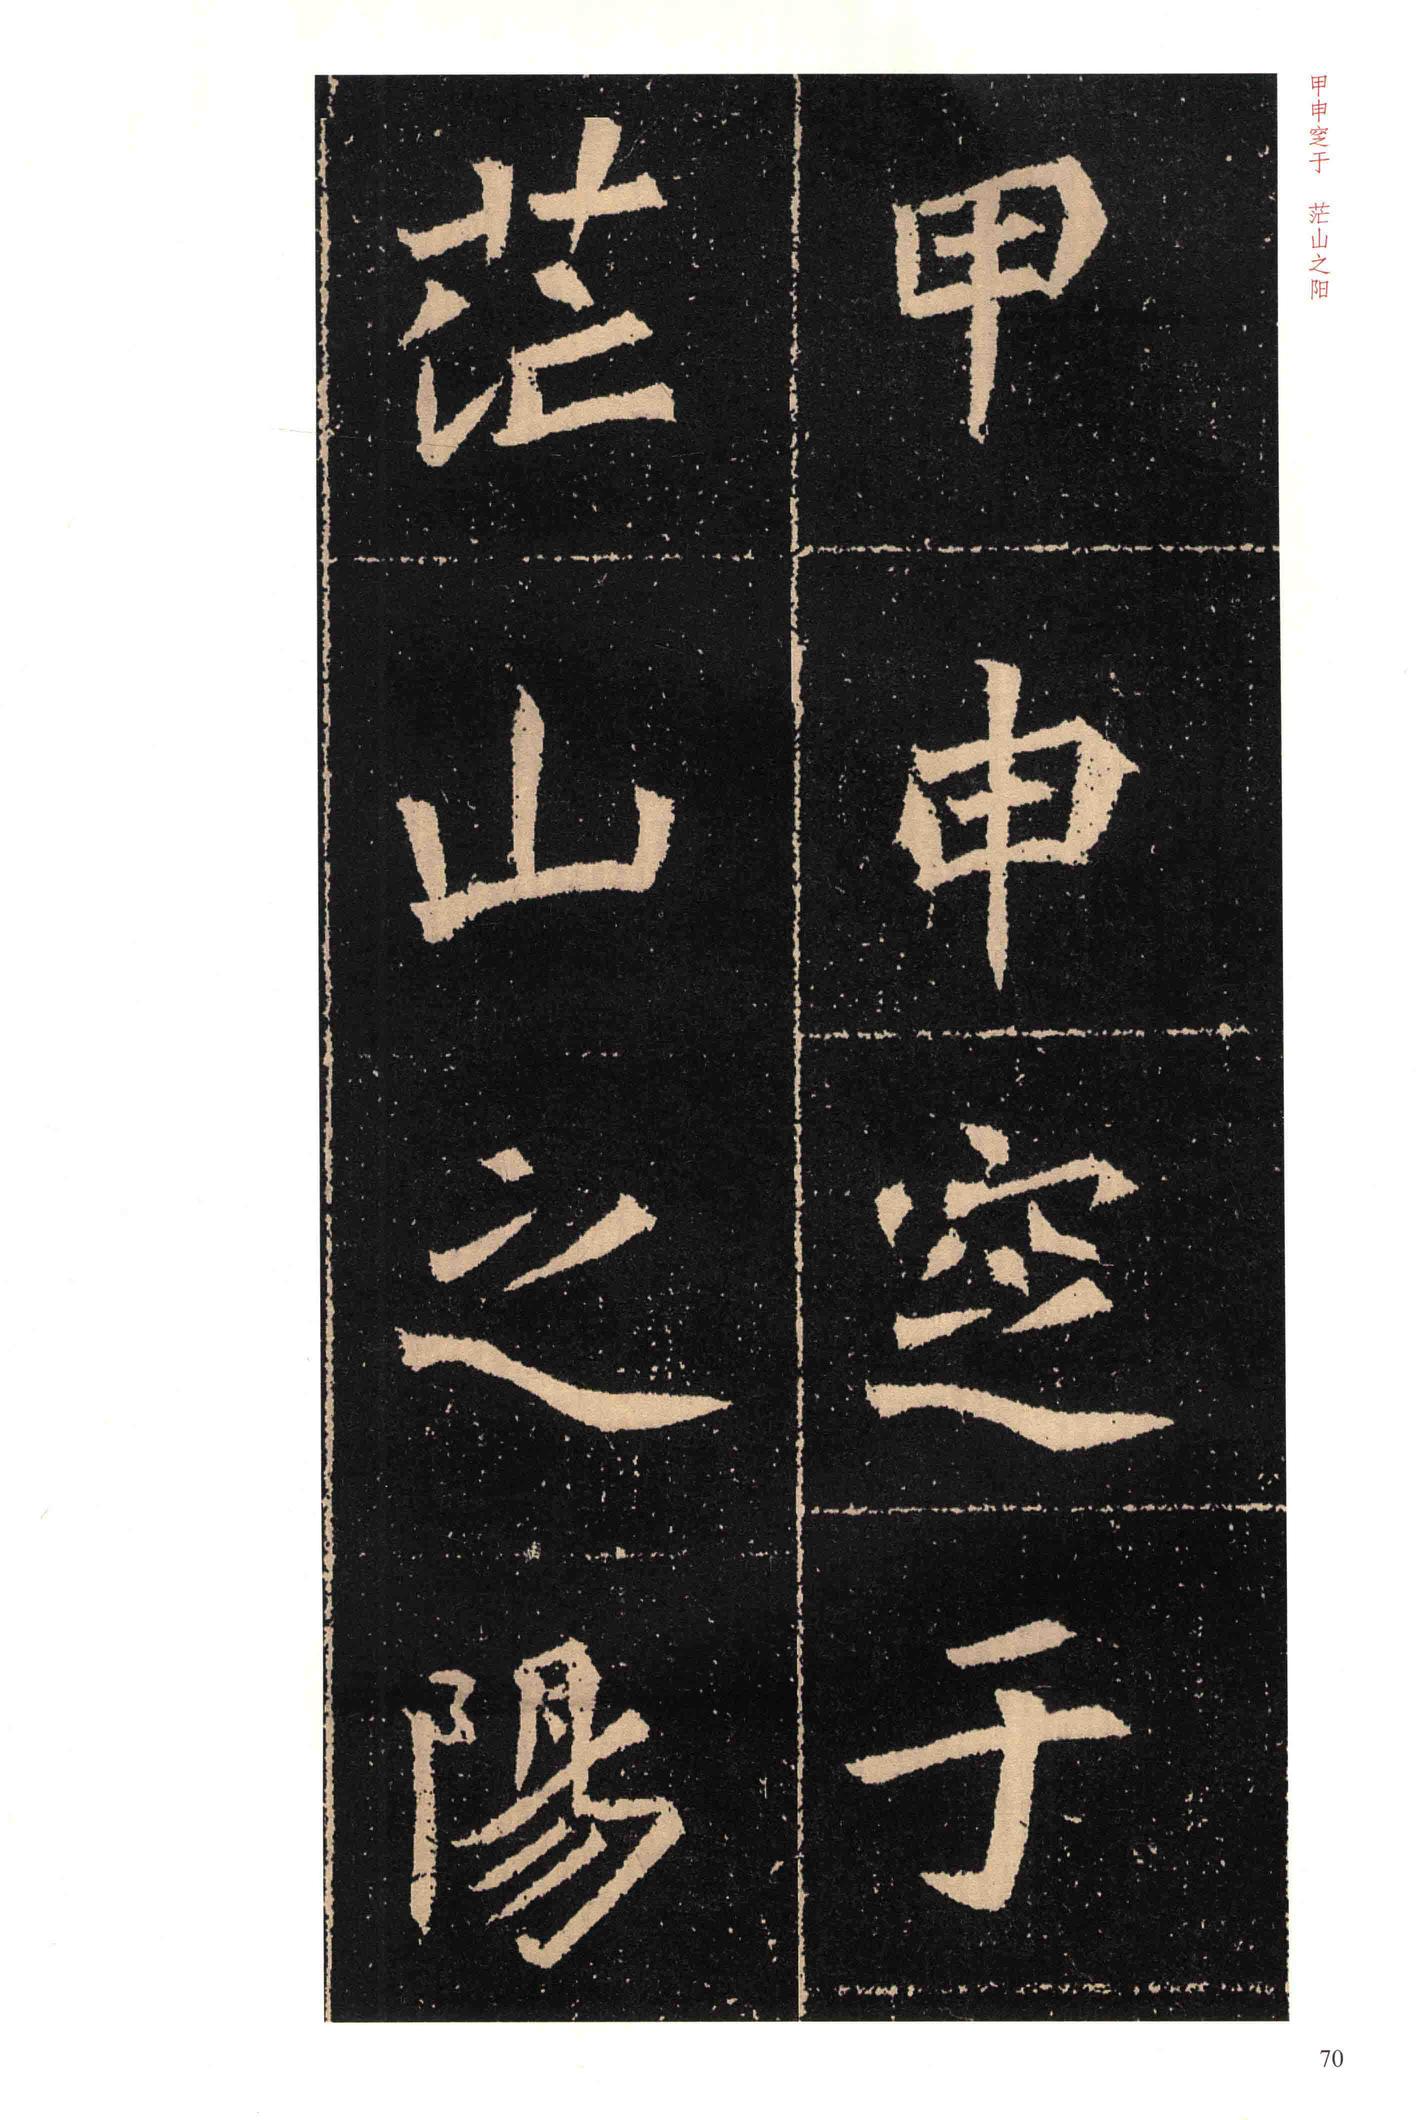 甲申窆于
茫山之陽
甲申窆于 茫山之阳
70